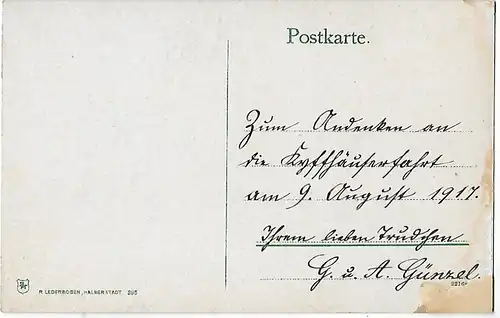 Postkarte.
Zum Andenken an
die Kyffhäuserfahrt
am 9. August 1917.
Ihrem lieben Trudchen
G. u. A. Günzel.
R. LEDERBOGEN, HALBERSTADT. 295